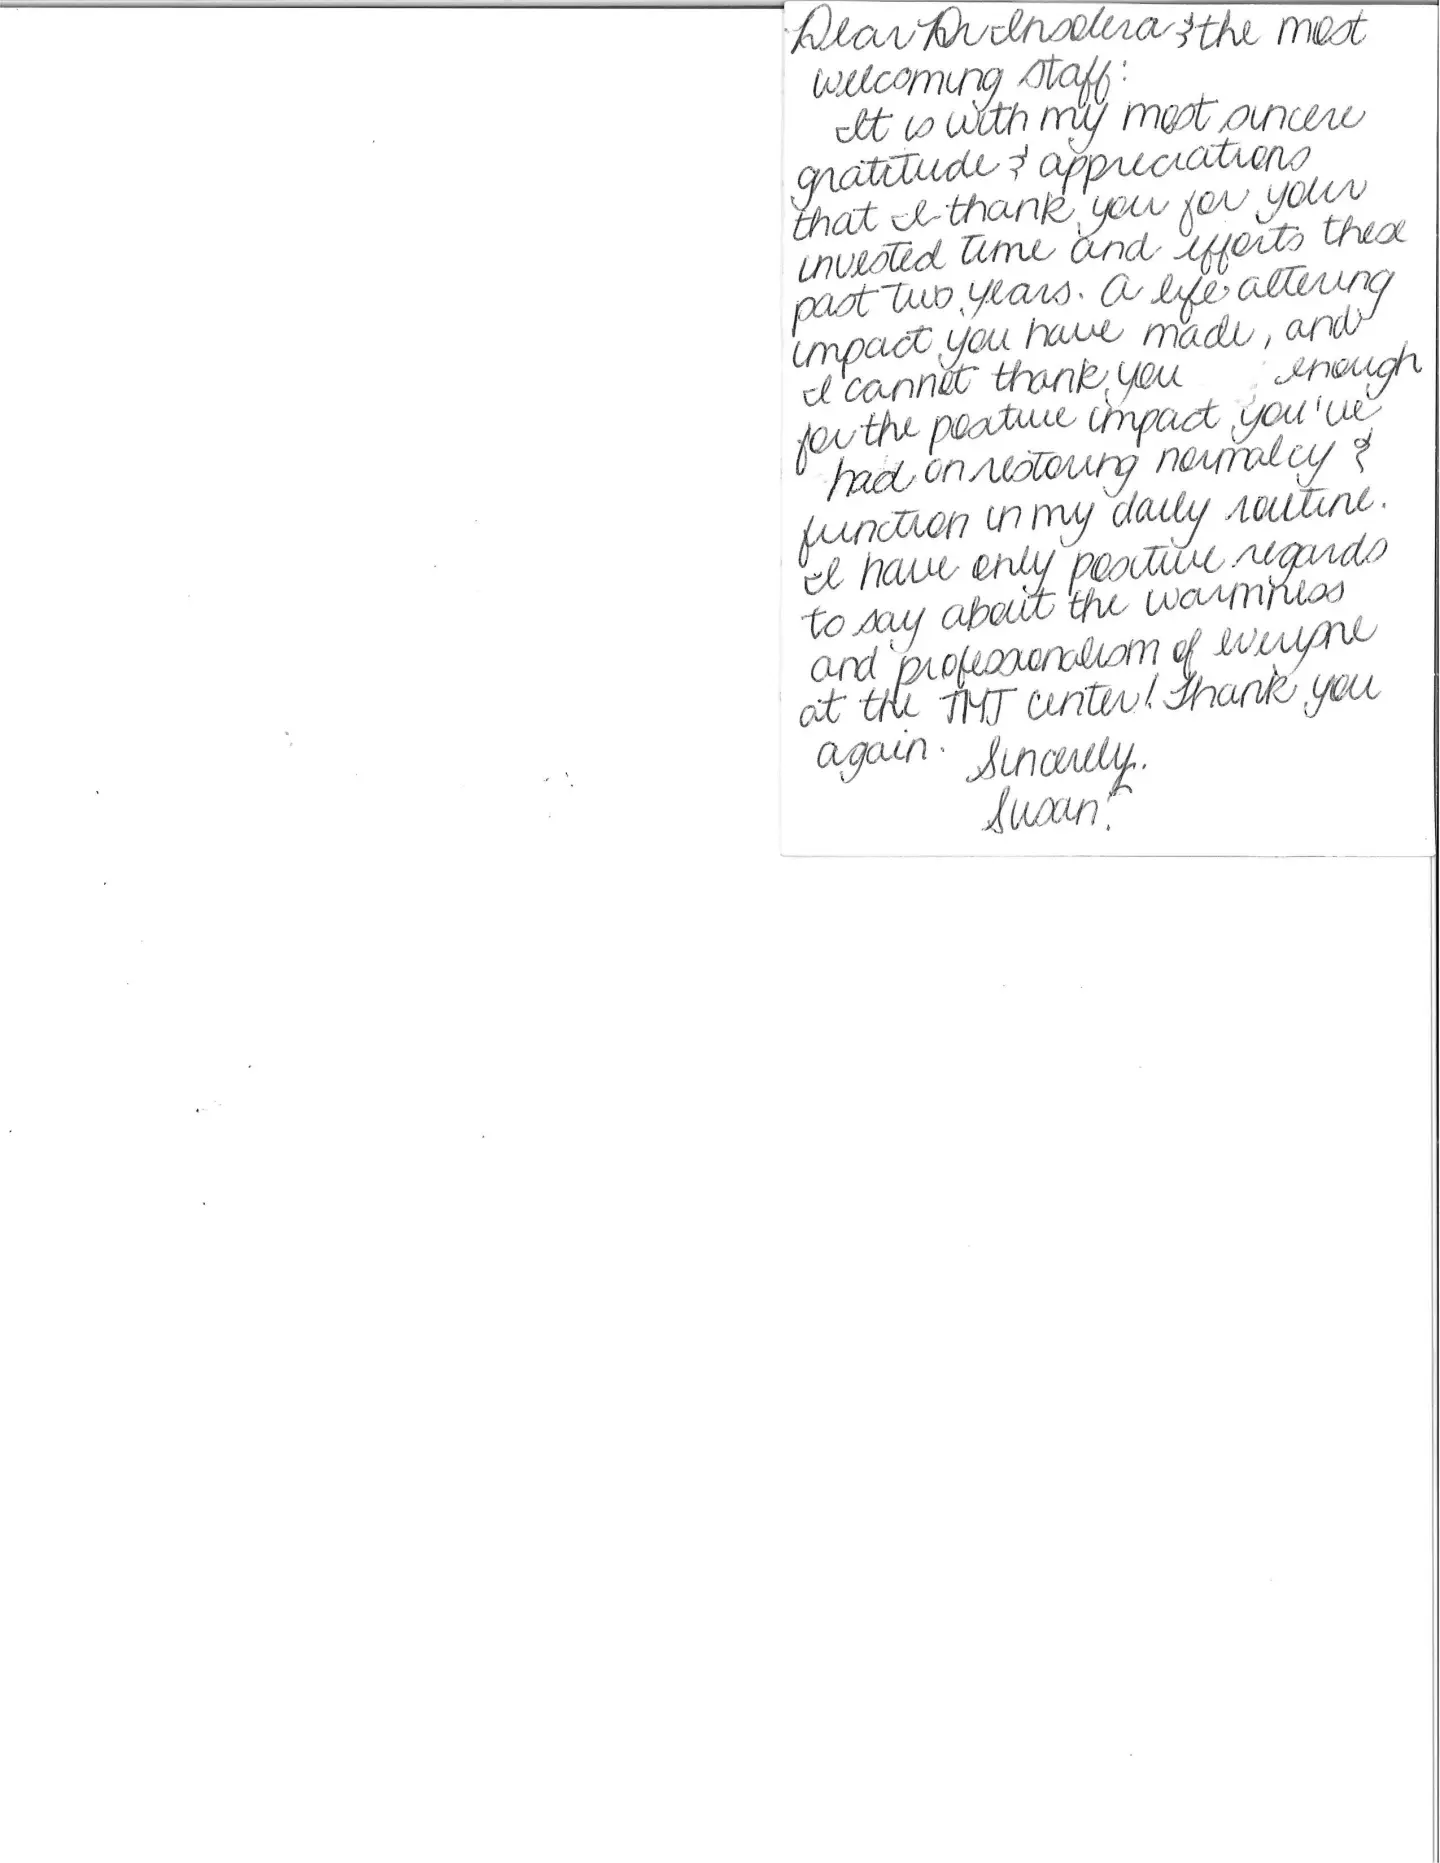 Dear Dr Insolera & the most
welcoming staff:
It is with my most sincere
gratitude & appreciations
that I thank you for your
invested time and efforts these
past two years. A life altering
impact you have made, and
I cannot thank you enough
for the positive impact you've
had on restoring normalcy &
function in my daily routine.
I have only positive regards
to say about the warmness
and professionalism of everyone
at the TMJ center! Thank you
again. Sincerely,
Susan!